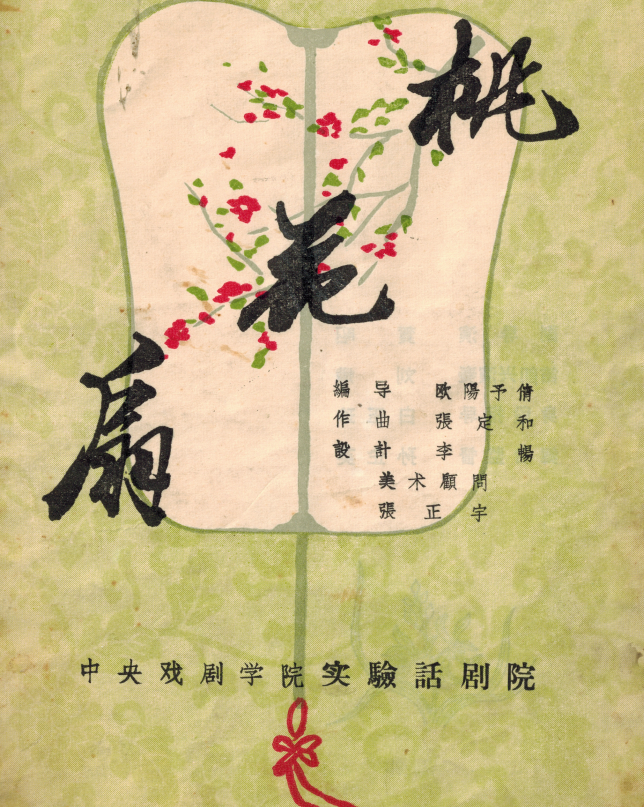 桃花扇
編导 欧陽予倩
作曲 張定和
設計 李暢
美术顧問
張正宇
中央戏剧学院实驗話剧院